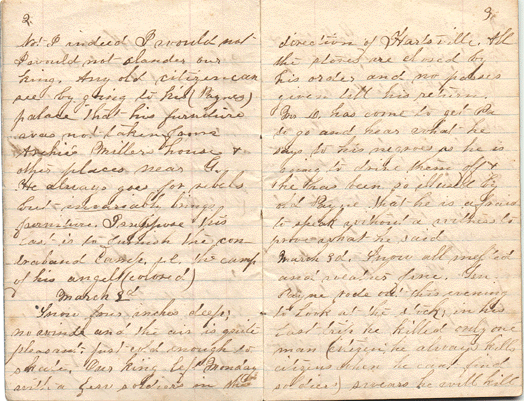 2
Not I indeed I would not
I would not slander our
king. Any old citizen can
see by going to his (Paynes)
palace that his furniture
was not taken from
Archie Millers house &
other places near G.
He always goes for rebels
but brings
furniture. I suppose this
last is to furnish the con
traband Camp, i.e. the camp
of his angels (colored)
March 2d
Snow four inches deep;
no wind and the air is quite
pleasant. just cold enough to
Our king left Monday
with a few soldiers in the
3
direction of Hartsville. All
the stores are closed by
his order and no passes
given till his return.
Bro D. has come to get Pa
to go and hear what he
says to his negroes as he is
going to drive them off &
he has been so abused by
old Payne that he is afraid
to speak without a witness to
prove what he said.
March 3d. Snow all melted
and weather fine. Gen.
Payne rode out this evening
to look at the stock, in his
last trip he killed only one
man (citizen, he always kills
citizens when he cant find
soldiers) swears he will kill